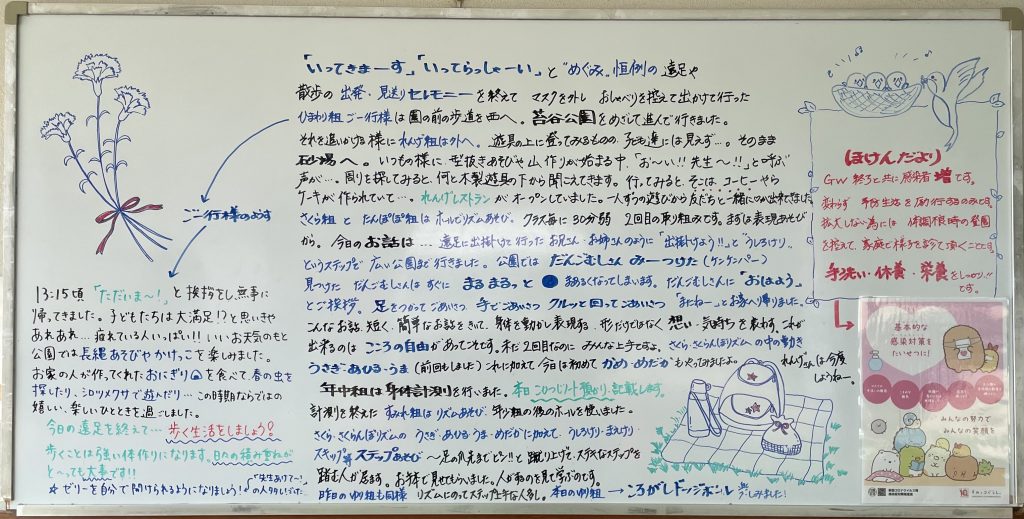 「いってきまーす」「いってらっしゃーい」と"めぐみ"恒例の遠足や
散歩の出発・見送りセレモニーを終えて マスクを外し おしゃべりを控えて出かけて行った
ひまわり組ご一行様は園の前の歩道を西へ。苔谷公園をめざして進んで行きました。
それを追いかける様にれんげ組は外へ。遊具の上に登ってみるものの、子ども達には見えず…。そのまま
砂場へ。いつもの様に、型抜きあそびや山作りが始まる中、「お〜い!! 先生〜!!」と呼ぶ
声が…。周りを探してみると、何と木製遊具の下から聞こえてきます。行ってみると、そこは、コーヒーやら
ケーキが作られていて…。れんげレストランがオープンしていました。一人ずつの遊びから友だちと一緒にのが出来てきました
さくら組とたんぽぽ組はホールでリズムあそび。クラス毎に30分弱 2回目の取り組みです。まずは表現あそび
から。今日のお話は…遠足に出掛けて行ったお兄さん・お姉さんのように「出掛けよう!!」と「うしろけり」
というステップで広い公園まで行きました。公園ではだんごむしさんみーつけた(ケンケンパー)
見つけただんごむしさんはすぐにまるまると●まあるくなってしまいます。だんごむしさんに「おはよう」
とご挨拶。足をつかってごあいさつ 手でごあいさつ クルッと回ってごあいさつ「またねー」とお家へ帰りました。
こんなお話、短く、簡単なお話をきいて、身体を動かし表現する。形だけではなく想い・気持ちを表わす。これが
出来るのはこころの自由があってこそです。未だ2回目なのにみんな上手ですよ。さくら・さくらんぼリズムの中の動き
うさぎ・あひる・うま(前回もしました)これに加えて今日は初めてかめ・めだかもやってみましたよ。
れんげさんは今度
しようねー。
年中組は身体計測を行いました。本日こひつじノート預かり、記載します。
計測を終えたすみれ組はリズムあそび。年少組の後のホールを使いました。
さくら・さくらんぼリズムのうさぎ・あひる・うま・めだかに加えて、うしろけり・まえけり・
スキップ等ステップあそび〜足の爪先までピン!!と蹴り上げて、大すてきなステップを
踏む人が居ます。お手本で見せてもらいました。人がすのを見て学ぶのです。
昨日のゆり組も同様 リズムにのってステップ上手な人多し。本日のゆり組→ころがしドッジボール 楽しみました!
ご一行様のようす
13:15頃「ただいま〜!」と挨拶をし無事に
帰ってきました。子どもたちは大満足!?と思いきや
あれあれ…疲れている人いっぱい!! いいお天気のもと
公園では長縄あそびやかけっこを楽しみました。
お家の人が作ってくれたおにぎりを食べて、春の虫を
探したり、シロツメクサで遊んだり…この時期ならではの
嬉しい、楽しいひとときを過ごしました。
今日の遠足を終えて…歩く生活をしましょう!
歩くことは強い体作りになります。日々の積み重ねが
と〜っても大事です!!
☆ゼリーを自分で開けられるようになりましょう!
「先生あけて〜」
の人タタしだった
(ほけんだより)
GW終了と共に感染者増です。
変わらず 予防生活を励行するのみです。
拡大しない為には 体調不良時の登園
を控えて、家庭で様子を診て頂くことです。
手洗い・休養・栄養をしっかり!!
です。
基本的な
感染対策を
たいせつに!
みんなの努力で
みんなの笑顔を